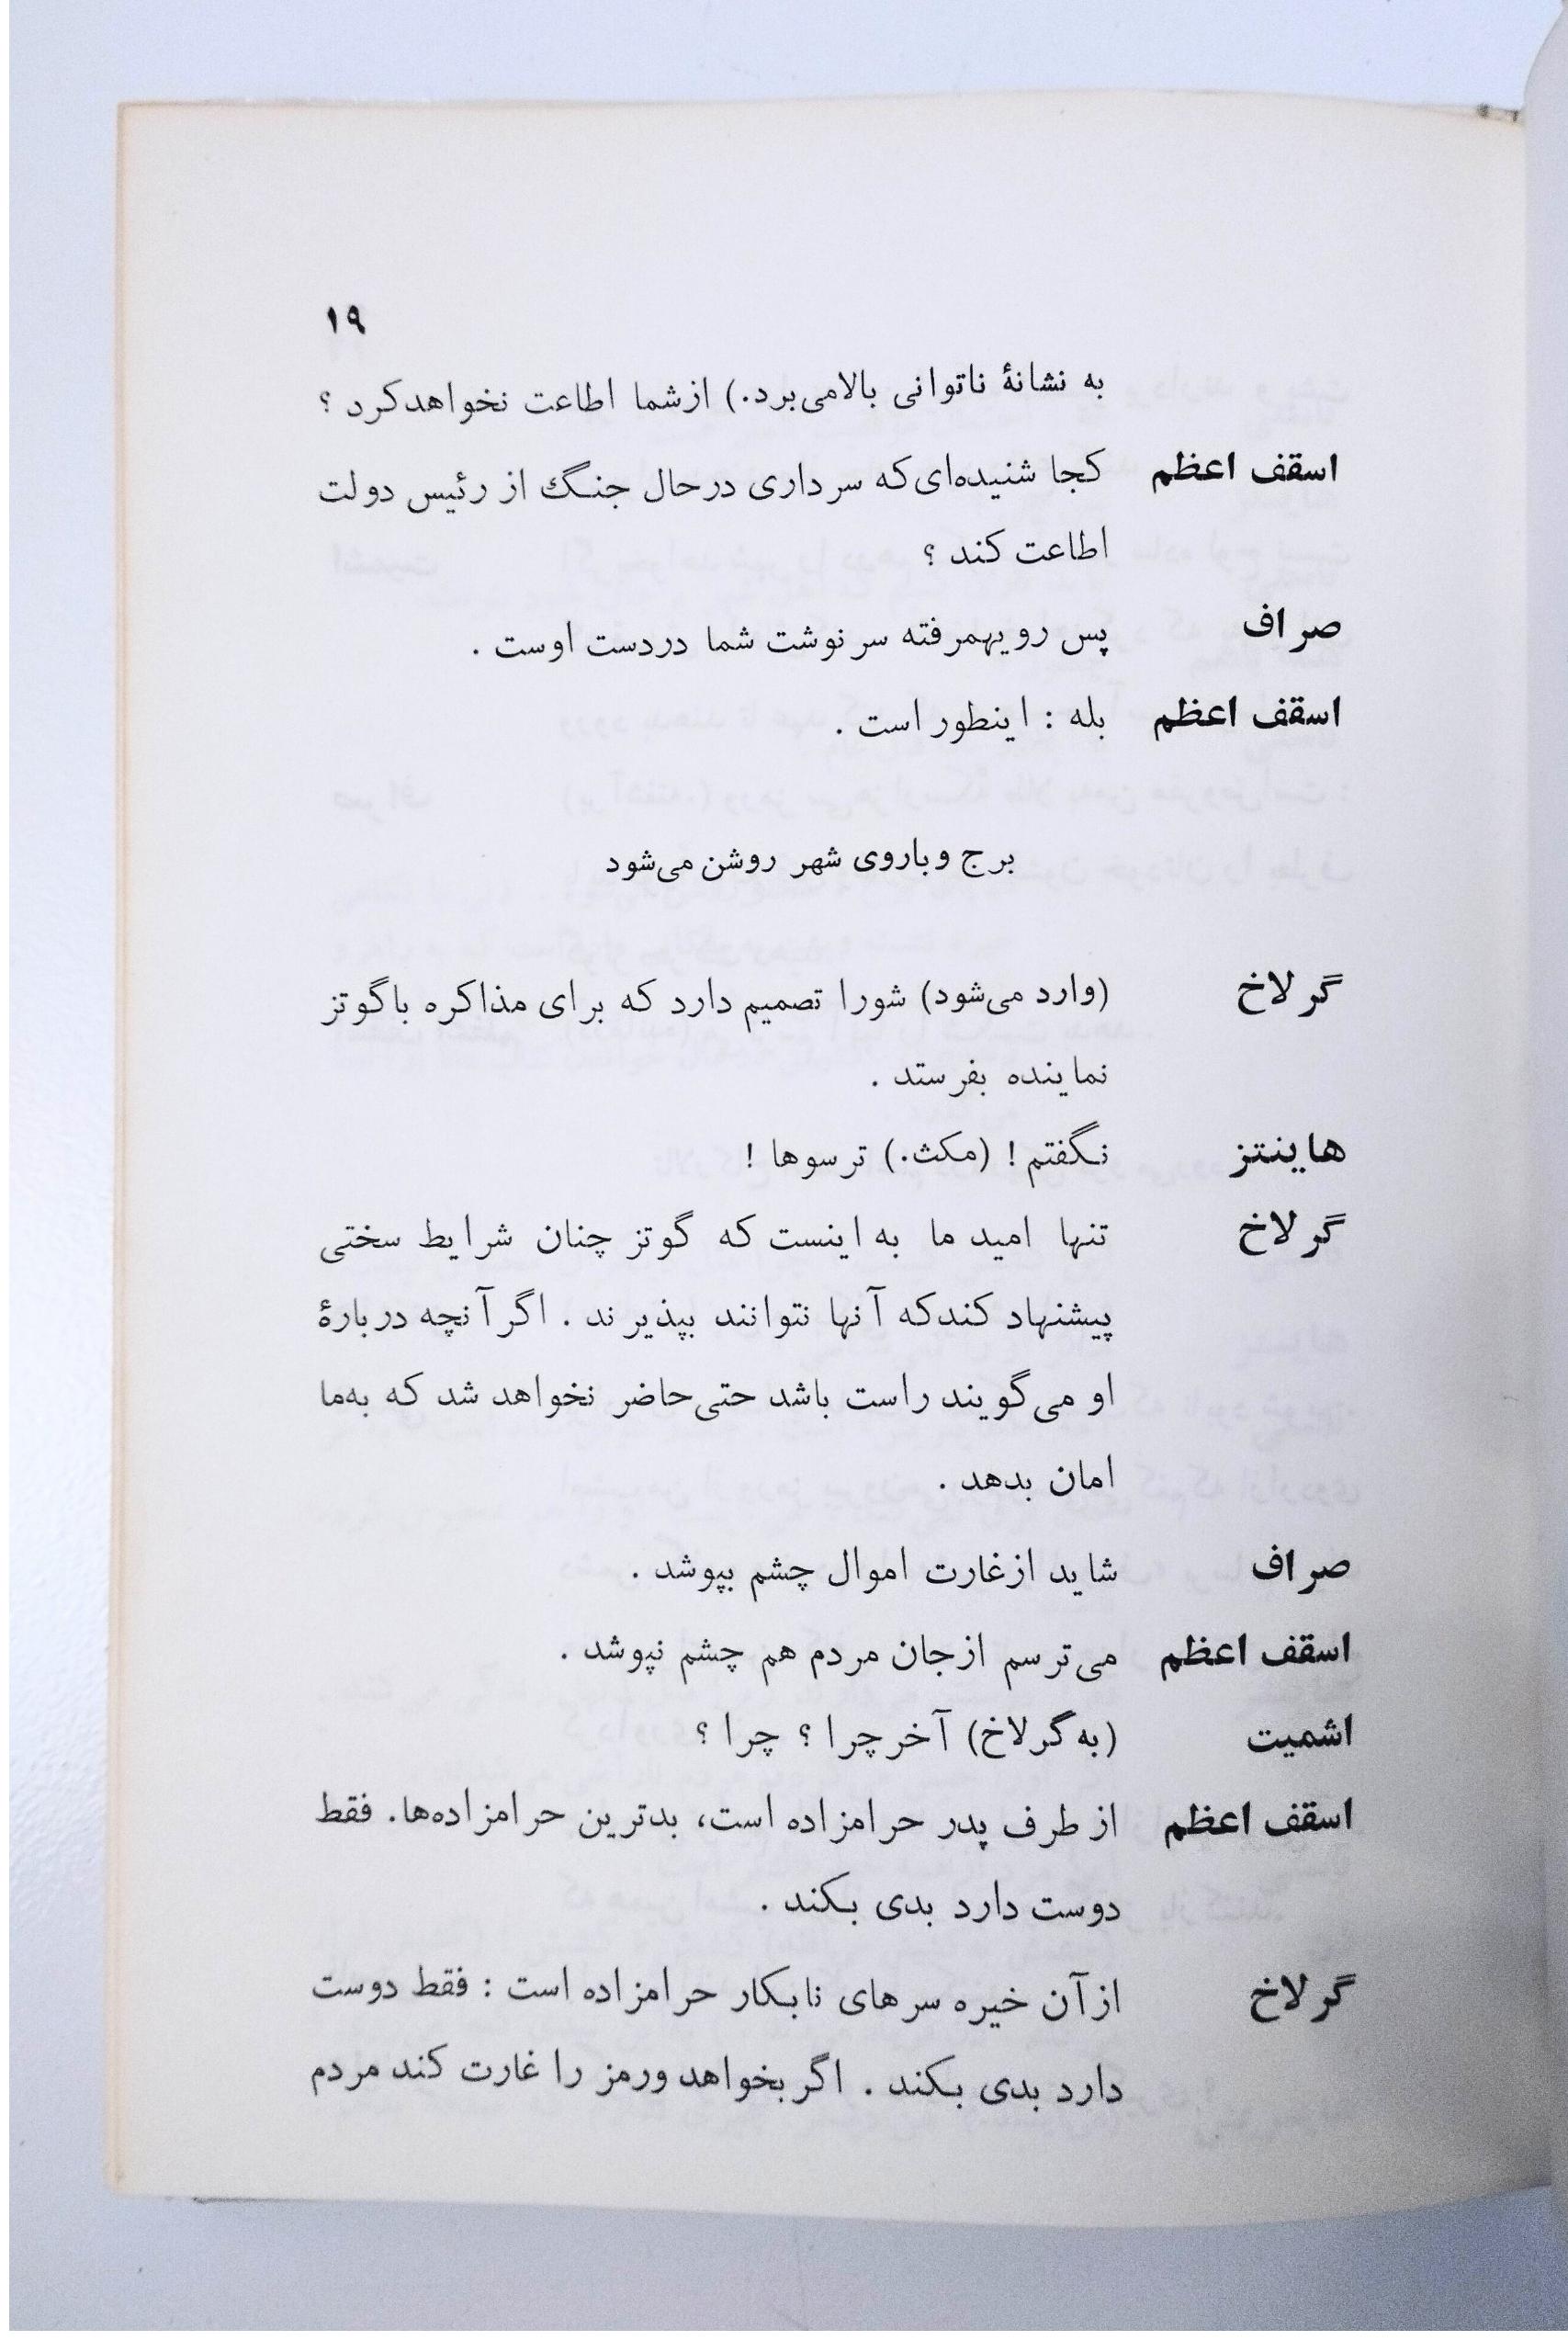 ۱۹
به نشانهٔ ناتوانی بالامی‌برد.) ازشما اطاعت نخواهدکرد ؟
اسقف اعظم کجا شنیده‌ای‌که سرداری درحال جنگ از رئیس دولت
اطاعت کند ؟
صراف پس رویهمرفته سرنوشت شما دردست اوست .
اسقف اعظم بله : اینطور است .
برج وباروی شهر روشن می‌شود
گرلاخ (وارد می‌شود) شورا تصمیم دارد که برای مذاکره باگوتز
نماینده بفرستد .
هاینتز نگفتم ! (مکث.) ترسوها !
گرلاخ تنها امید ما به اینست که گوتز چنان شرایط سختی
پیشنهاد کندکه آنها نتوانند بپذیرند . اگرآنچه دربارهٔ
او می‌گویند راست باشد حتی‌حاضر نخواهد شد که به‌ما
امان بدهد .
صراف شاید ازغارت اموال چشم بپوشد .
اسقف اعظم می‌ترسم ازجان مردم هم چشم نپوشد .
اشمیت (به‌گرلاخ) آخرچرا ؟ چرا ؟
اسقف اعظم از طرف پدر حرامزاده است، بدترین حرامزاده‌ها. فقط
دوست دارد بدی بکند .
گرلاخ ازآن خیره سرهای نابکار حرامزاده است : فقط دوست
دارد بدی بکند . اگربخواهد ورمز را غارت کند مردم